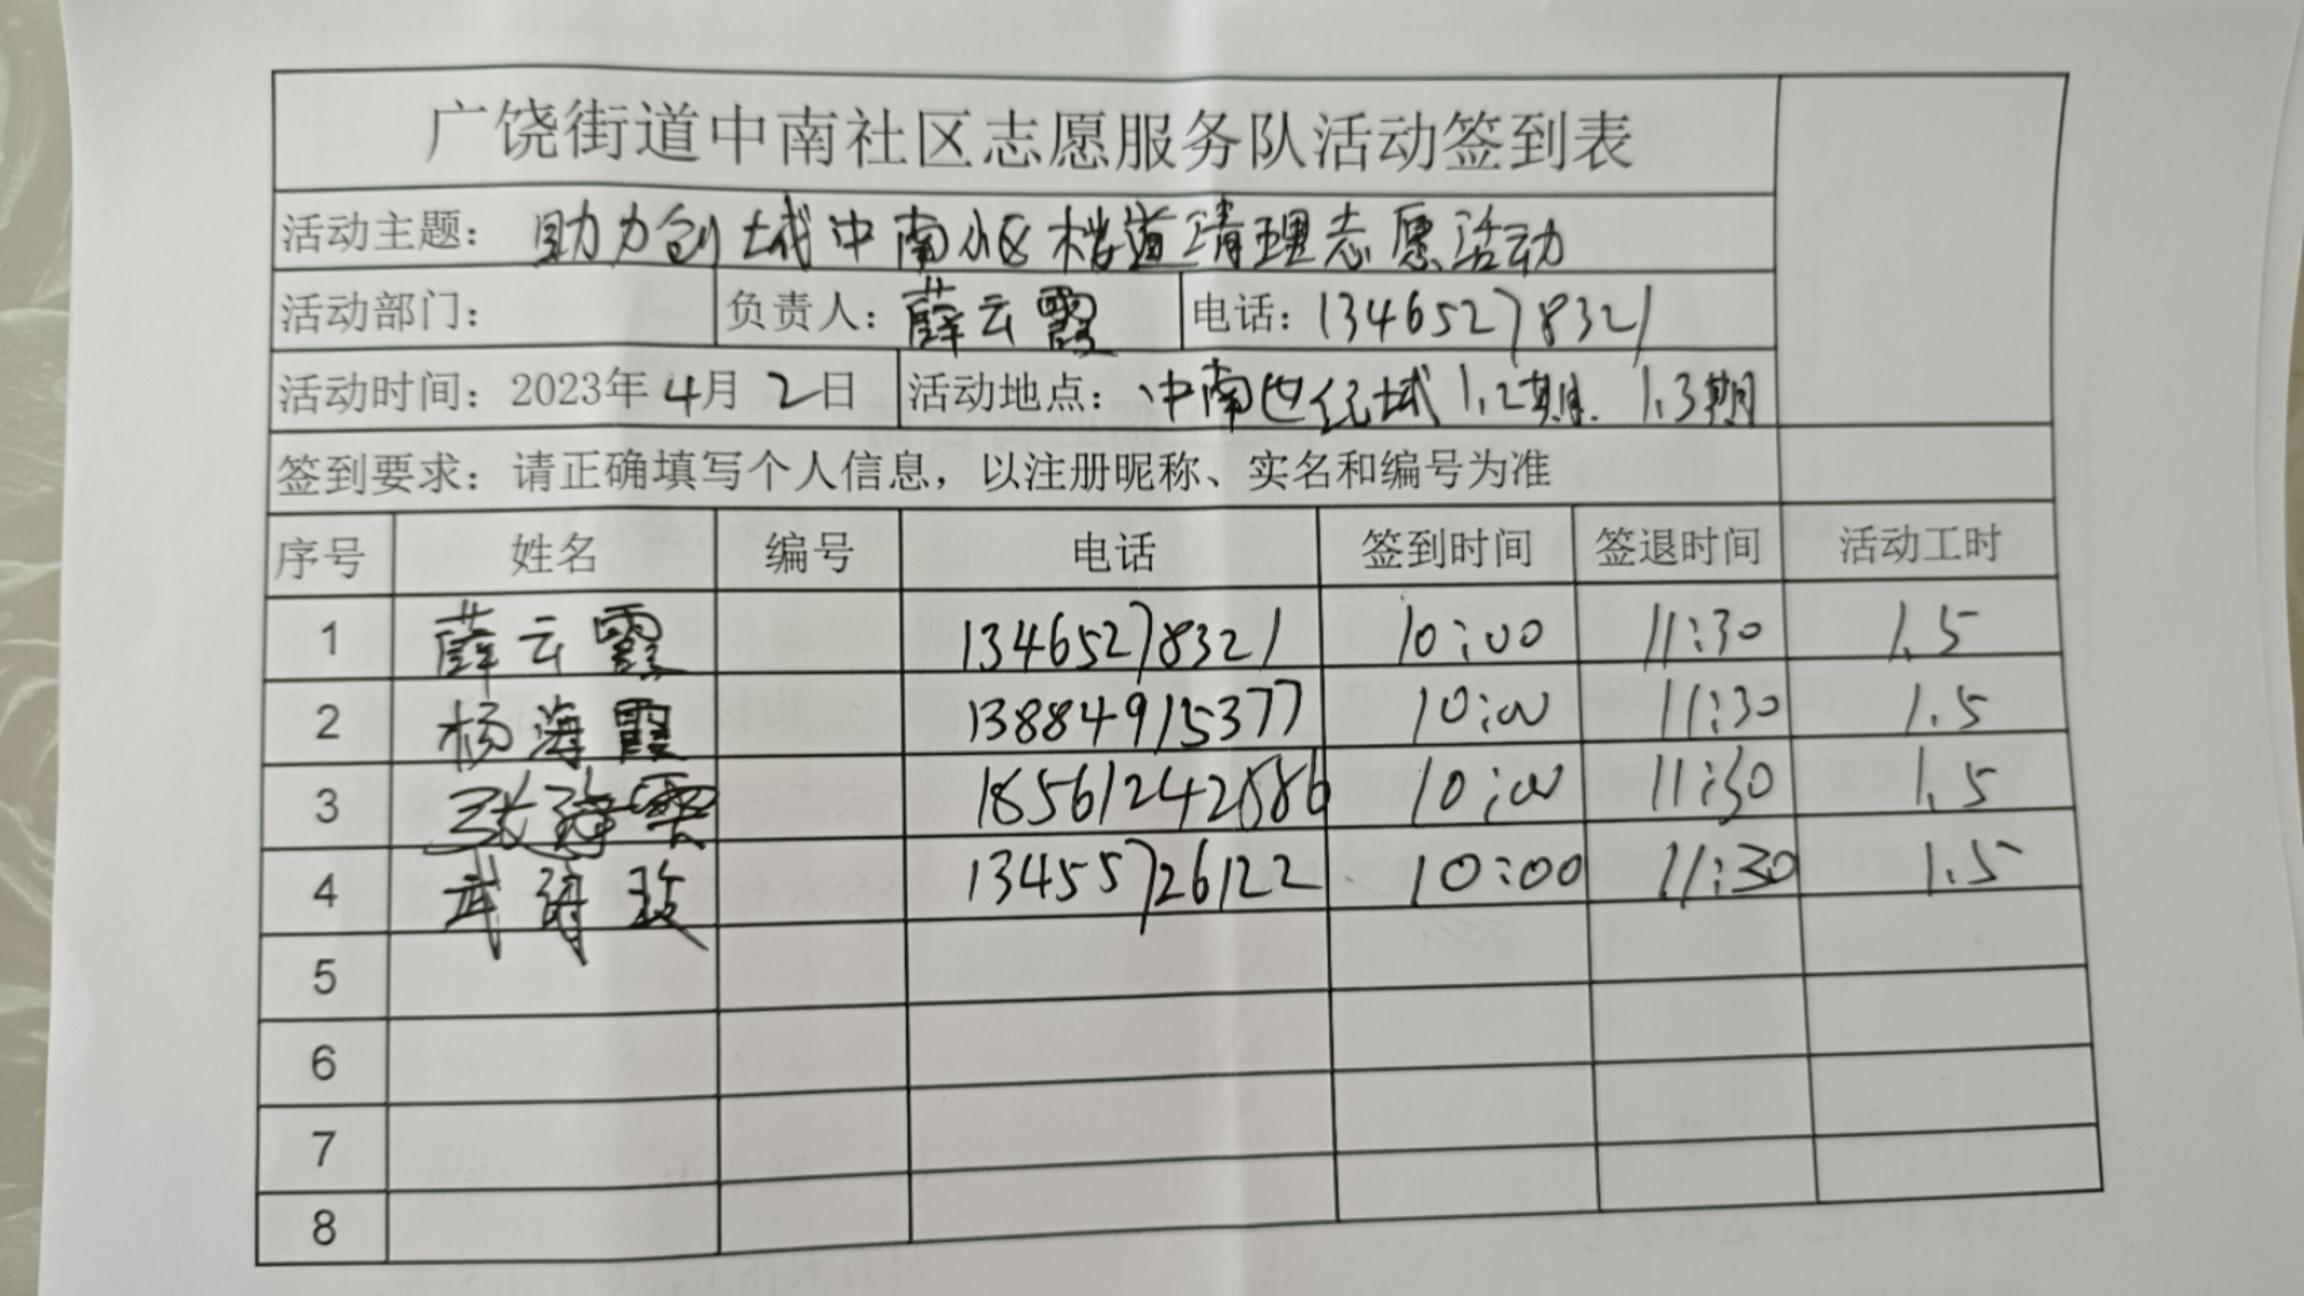 广饶街道中南社区志愿服务队活动签到表
活动主题：助力创城中南小区楼道清理志愿活动
活动部门： 负责人：薛云霞 电话：13465278321
活动时间：2023年4月2日 活动地点：中南世纪城1.2期. 1.3期
签到要求：请正确填写个人信息，以注册昵称、实名和编号为准
序号 姓名 编号 电话 签到时间 签退时间 活动工时
1 薛云霞 13465278321 10:00 11:30 1.5
2 杨海霞 13884915377 10:00 11:30 1.5
3 张海霞 18561242886 10:00 11:30 1.5
4 武 玫 13455726122 10:00 11:30 1.5
5
6
7
8